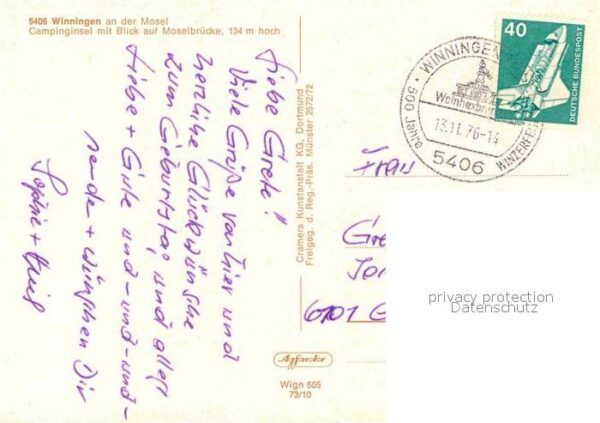 5406 Winningen an der Mosel
Campinginsel mit Blick auf Moselbrücke, 134 m hoch
Liebe Grete!
Viele Grüße von hier und
herzliche Glückwünsche
zum Geburtstag und alles
Liebe + Gute und-und-und-
sende + wünschen Dir
Sophie +
Cramers Kunstanstalt KG, Dortmund
Freigeg. d. Reg.-Präs. Münster 2572/72
Agfacolor
Wign 505
73/10
40
DEUTSCHE BUNDESPOST
WINNINGEN
Weinhexbr
13.11.76-14
500 Jahre
WINZERFE
5406
Frau
Gre
6101
privacy protection
Datenschutz